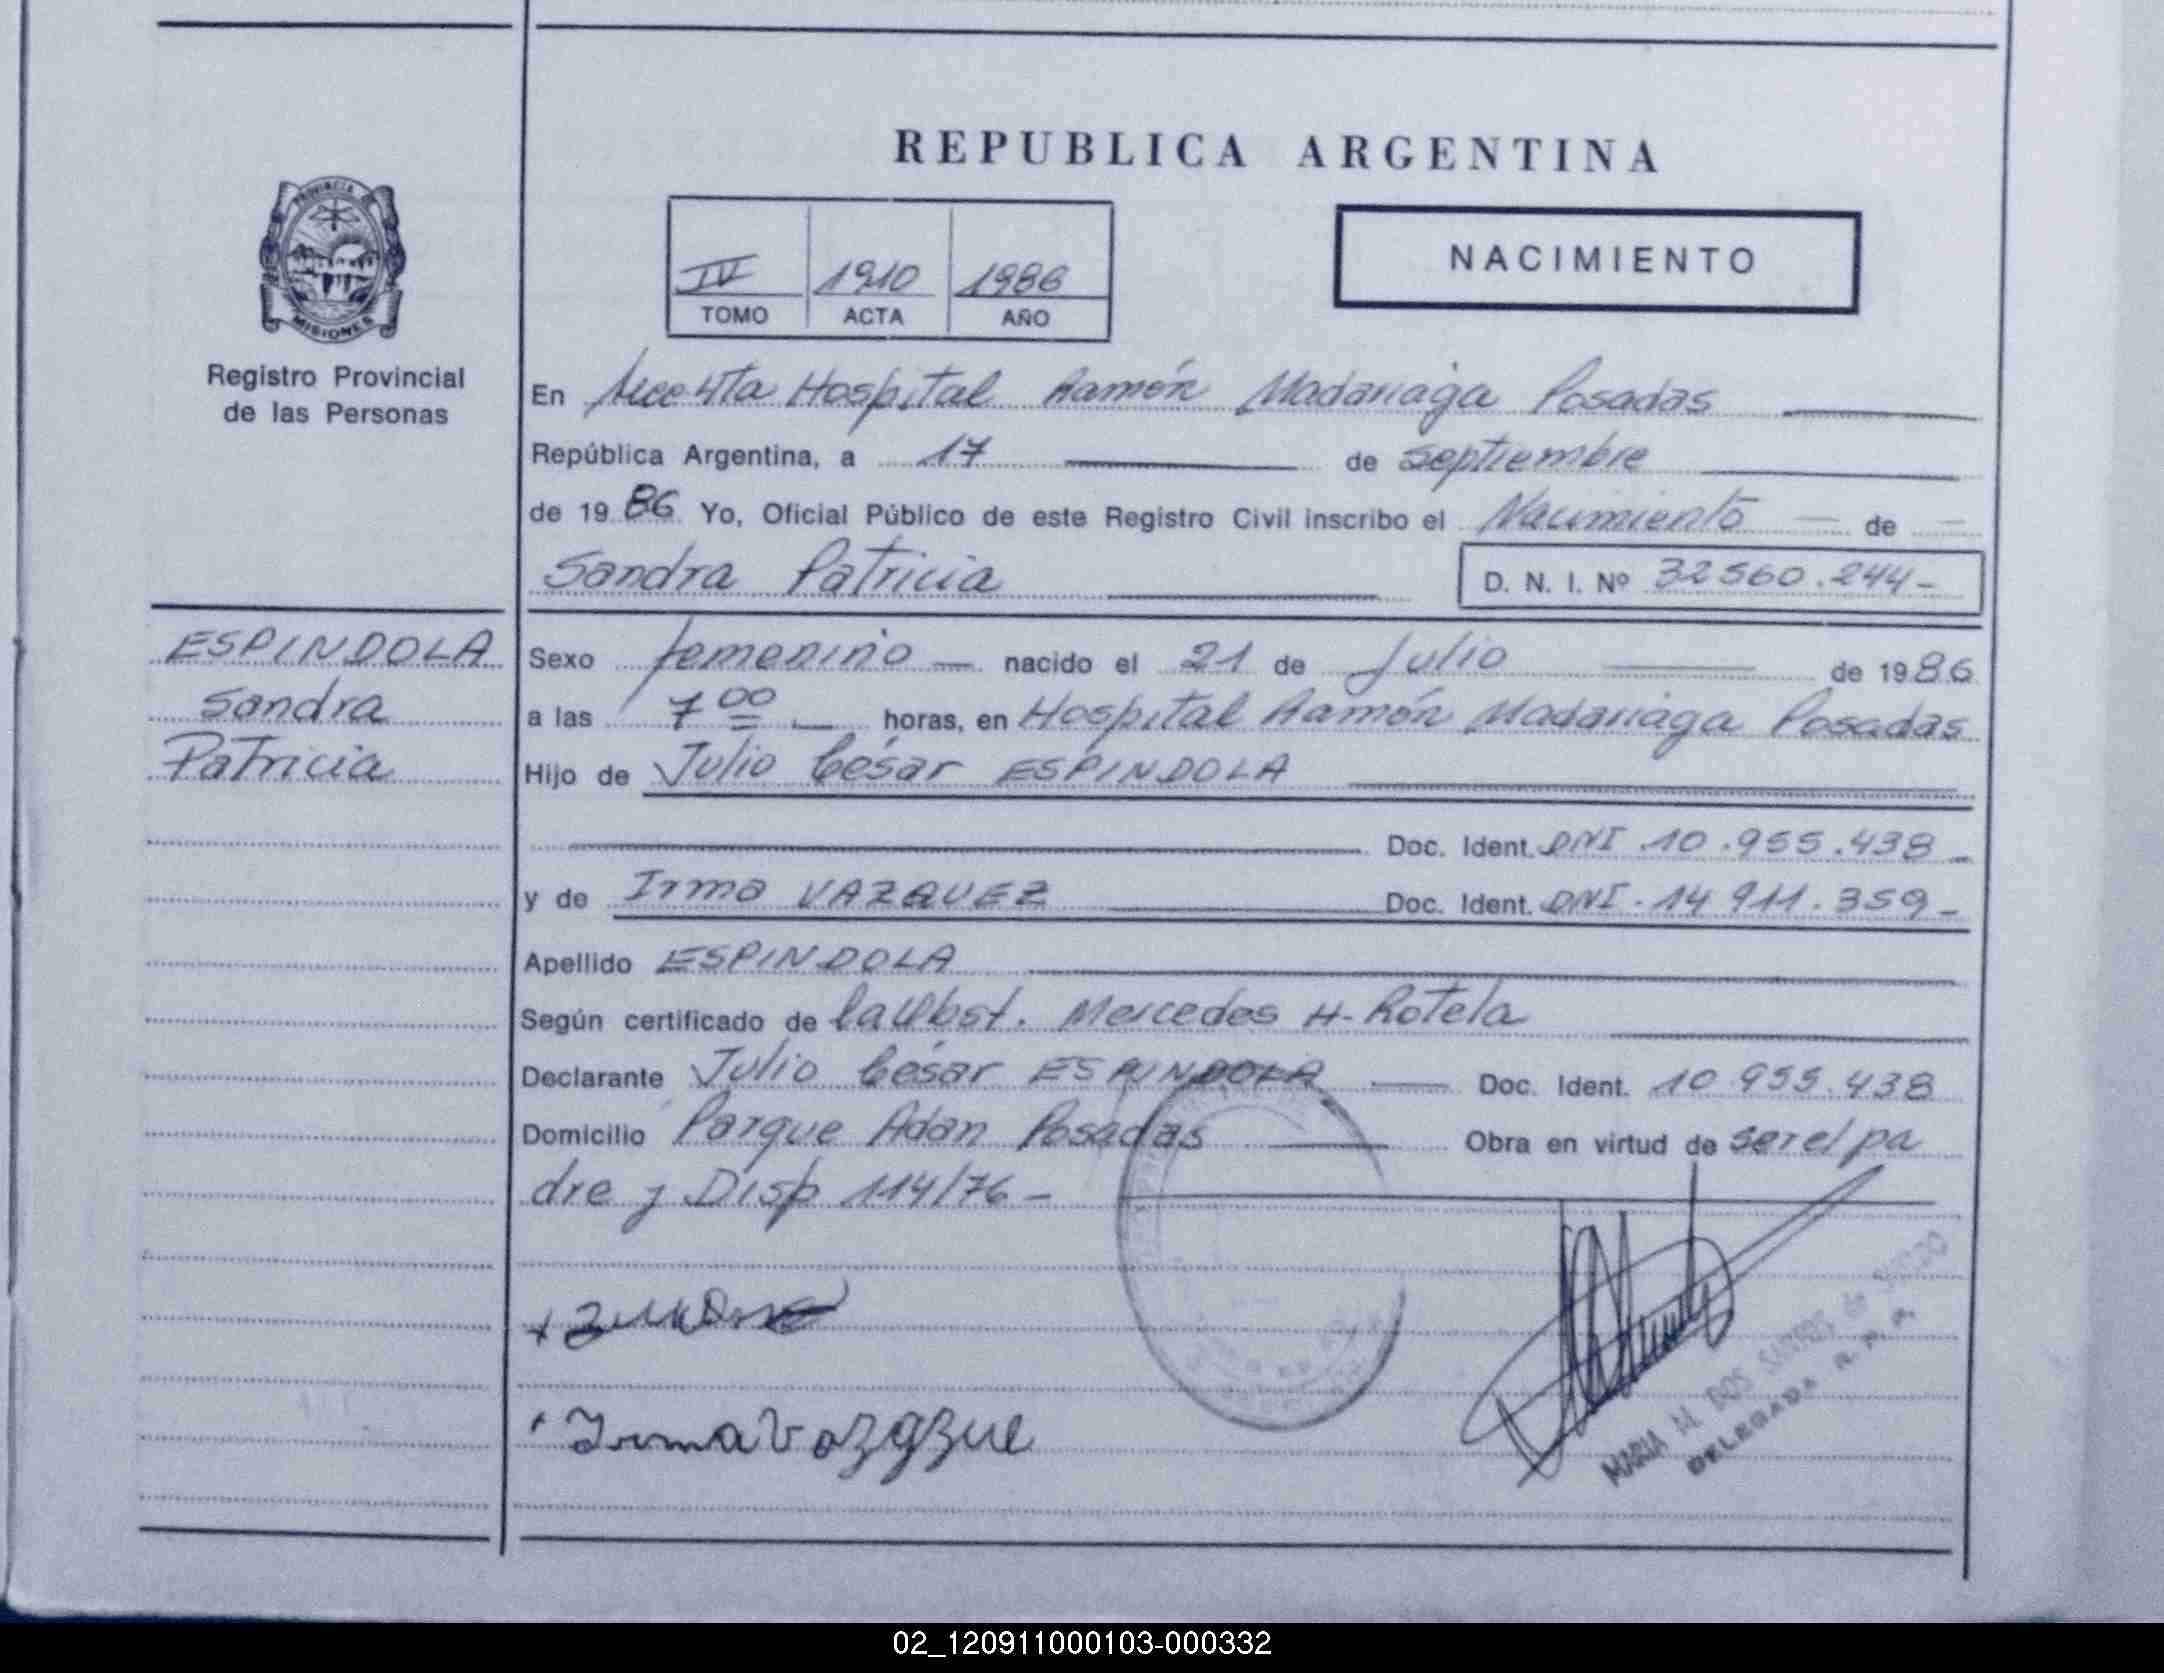 REPUBLICA ARGENTINA
PROVINCIA DE
MISIONES
Registro Provincial
de las Personas
IV 1910 1986
TOMO ACTA AÑO
NACIMIENTO
En Hospital Ramón Madariaga Posadas
República Argentina, a 17 de septiembre
de 1986 Yo, Oficial Público de este Registro Civil inscribo el Nacimiento de
Sandra Patricia D. N. I. Nº 32560.244-
ESPINDOLA
Sandra
Patricia
Sexo femenino nacido el 21 de Julio de 1986
a las 7 00 horas, en Hospital Ramón Madariaga Posadas
Hijo de Julio César ESPINDOLA
Doc. Ident. DNI 10.955.438
y de Irma VAZQUEZ Doc. Ident. DNI. 14 911.359-
Apellido ESPINDOLA
Según certificado de la Obst. Mercedes H. Rotela
Declarante Julio César ESPINDOLA Doc. Ident. 10 955.438
Domicilio Parque Adan Posadas Obra en virtud de ser el pa
dre y Disp 114/76-
Irma Vazqzue
MARIA M. DOS SANTOS de
DELEGADA R. P. P.
02_120911000103-000332